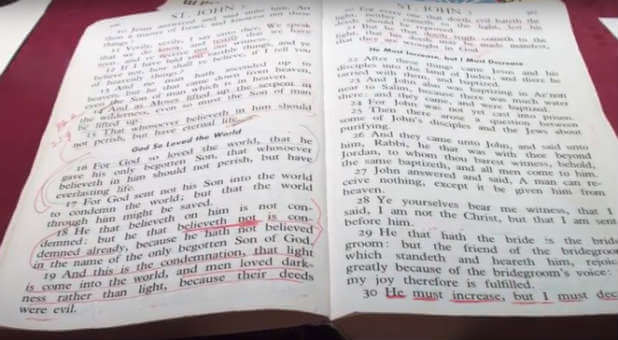 ST. JOHN
10 Jesus answered and said unto him, Art
thou a master of Israel, and knowest not these
things?
11 Verily, verily, I say unto thee, We speak
that we do know, and testify that we have
seen; and ye receive not our witness.
12 If I have told you earthly things, and ye
believe not, how shall ye believe, if I tell you
of heavenly things?
13 And no man hath ascended up to
heaven, but he that came down from heaven,
even the Son of man
14 And as Moses lifted up the serpent in
the wilderness, even so must the Son of man
be lifted up:
15 That whosoever believeth in him should
not perish, but have eternal life.
God So Loved the World
16 For God so loved the world, that he
gave his only begotten Son, that whosoever
believeth in him should not perish, but have
everlasting life.
17 For God sent not his Son into the world
to condemn the world; but that the world
through him might be saved.
18 He that believeth on him is not con-
demned: but he that believeth not is con-
demned already, because he hath not believed
in the name of the only begotten Son of God.
19 And this is the condemnation, that light
is come into the world, and men loved dark-
ness rather than light, because their deeds
were evil.
ST. JOHN
20 For every one that doeth evil hateth the
light, neither cometh to the light, lest his
deeds should be reproved.
21 But he that doeth truth cometh to the
light, that his deeds may be made manifest,
that they are wrought in God.
He Must Increase, but I Must Decrease
22 After these things came Jesus and his
disciples into the land of Judea; and there he
tarried with them, and baptized.
23 And John also was baptizing in Ae'non
near to Salim, because there was much water
there: and they came, and were baptized.
24 For John was not yet cast into prison.
25 Then there arose a question between
some of John's disciples and the Jews about
purifying.
26 And they came unto John, and said unto
him, Rabbi, he that was with thee beyond
Jordan, to whom thou barest witness, behold,
the same baptizeth, and all men come to him.
27 John answered and said, A man can re-
ceive nothing, except it be given him from
heaven.
28 Ye yourselves bear me witness, that I
said, I am not the Christ, but that I am sent
before him.
29 He that hath the bride is the bride
groom: but the friend of the bridegroom
which standeth and heareth him, rejoic
greatly because of the bridegroom's voice:
my joy therefore is fulfilled.
30 He must increase, but I must dec